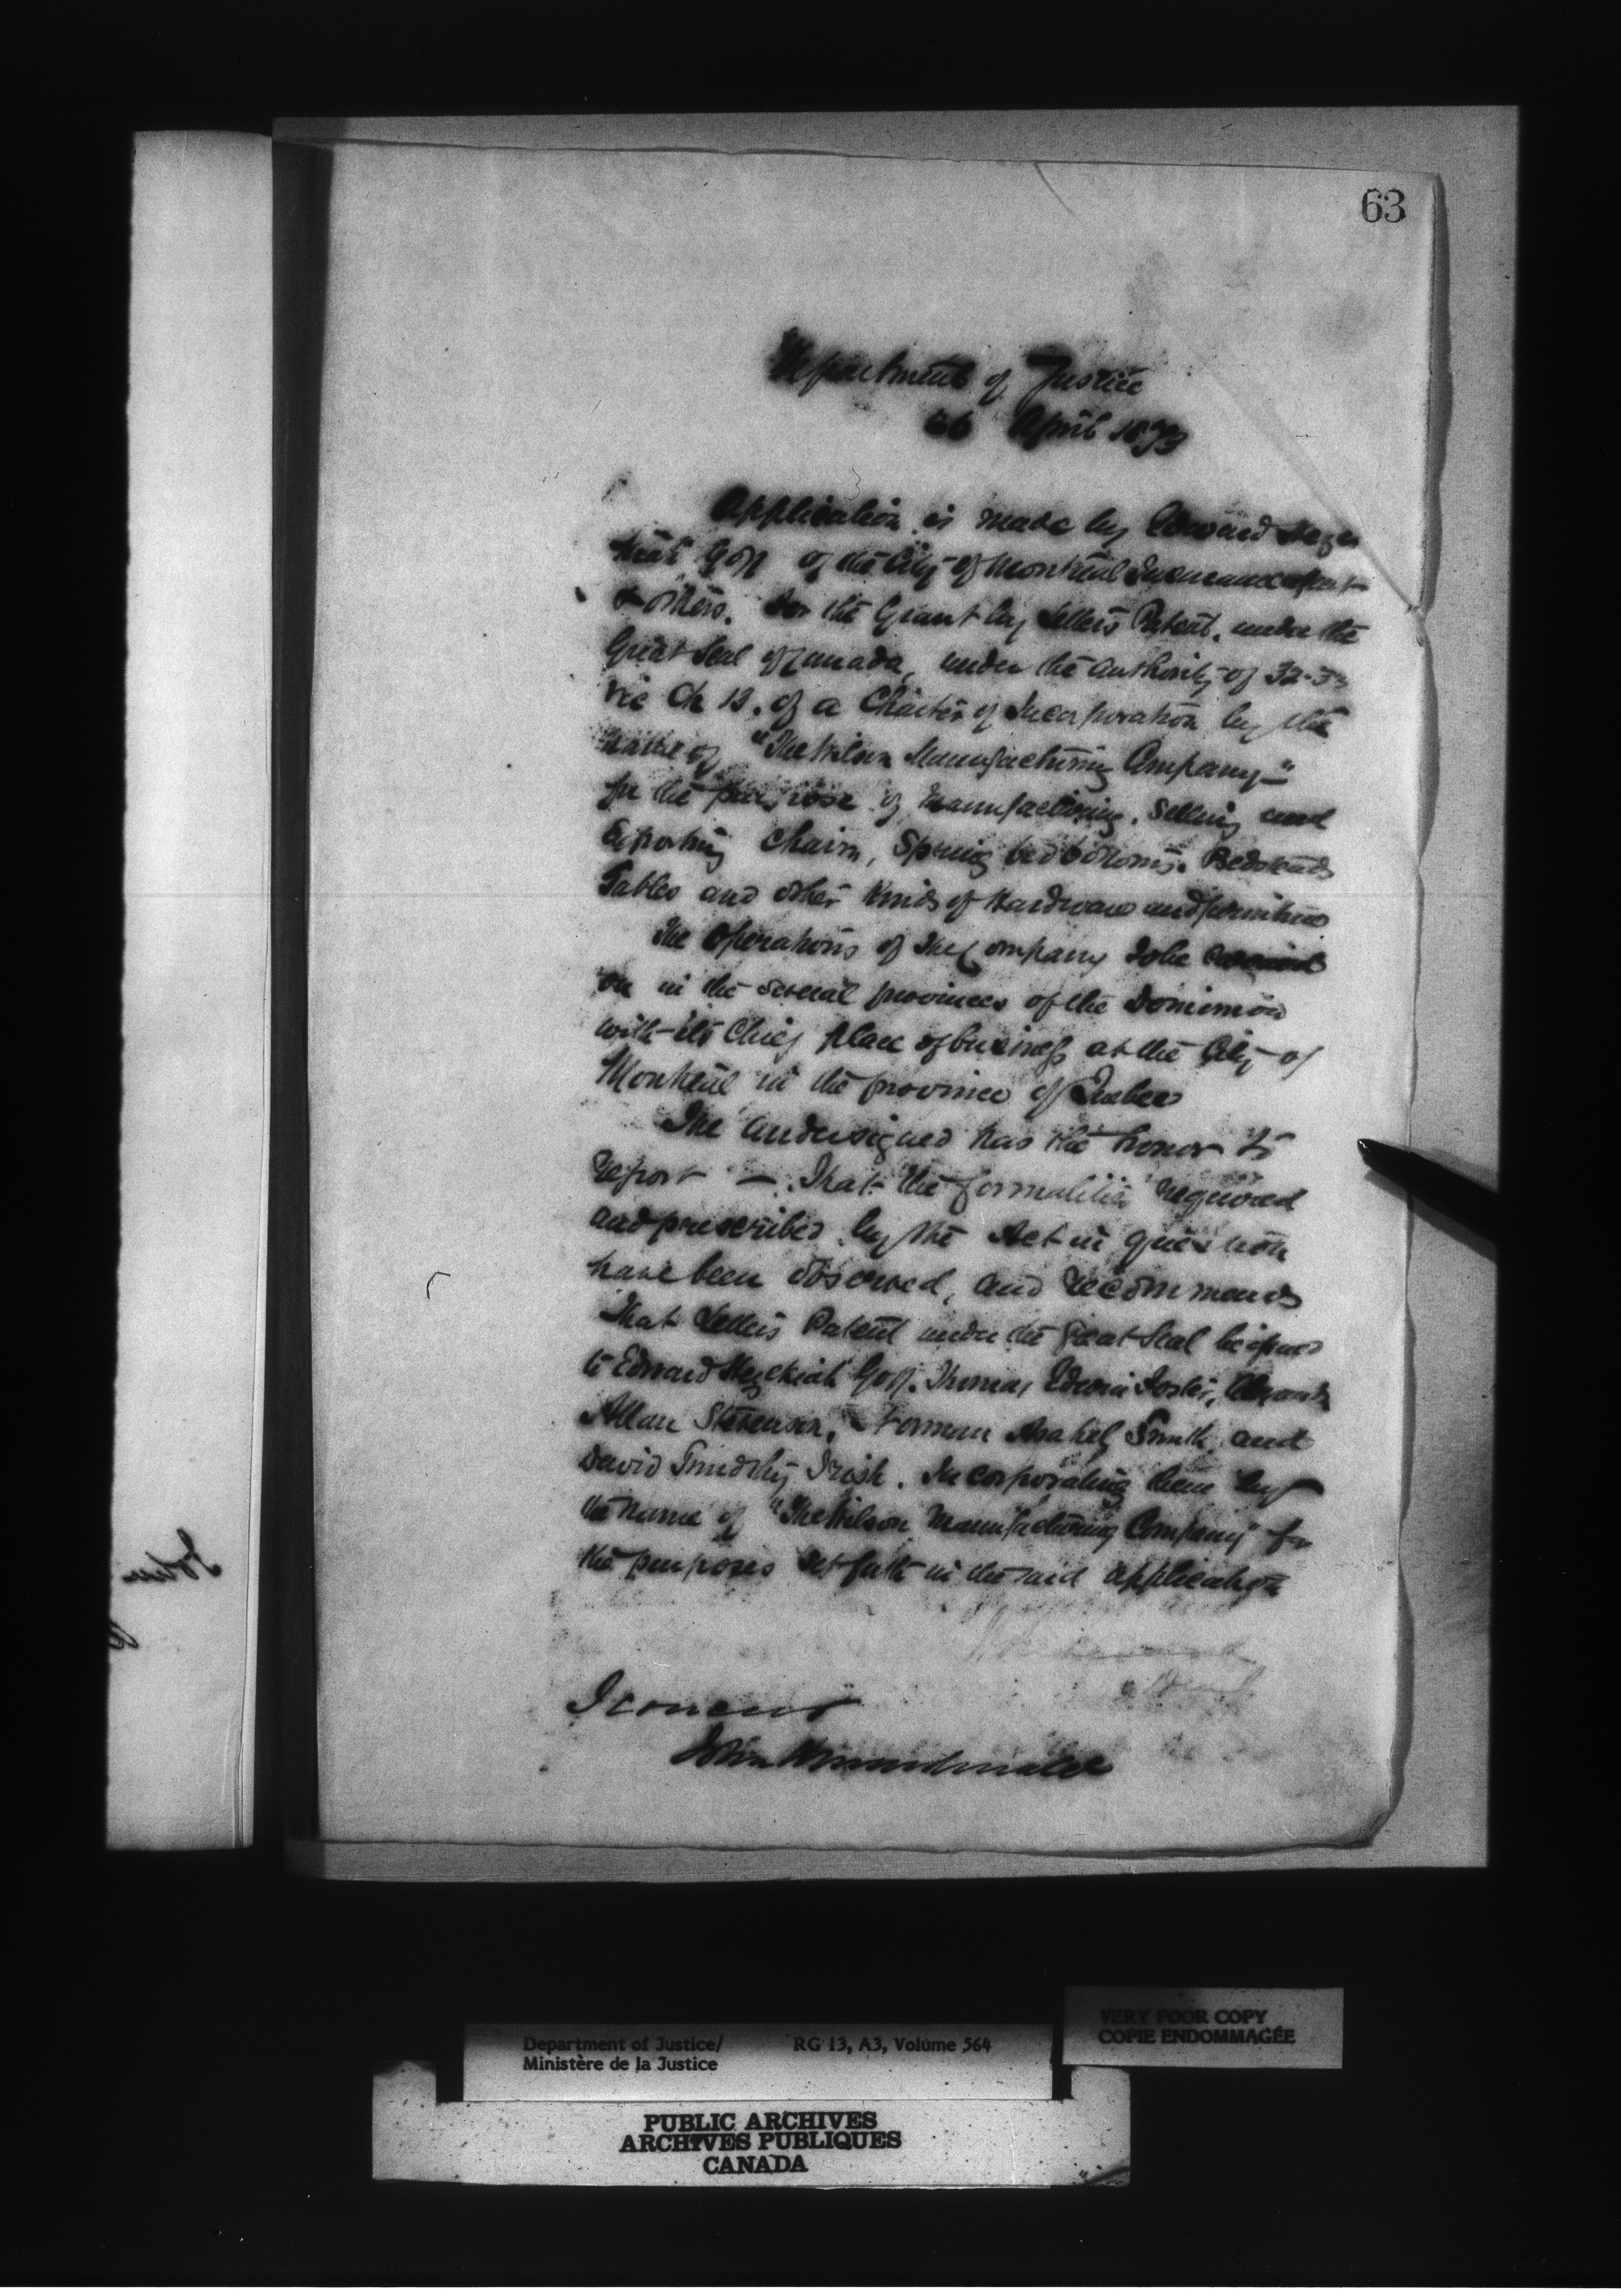 63
Department of Justice
26 April 1873
Application is made by Edward Heze
kiah Goff of the City of Montreal Insurance Agent
& others. for the Grant by Letters Patent, under the
Great Seal of Canada, under the authority of 32-33
Vic Ch 13. of a Charter of Incorporation by the
name of "The Wilson Manufacturing Company-"
for the purpose of manufacturing, selling and
Exporting Chairs, Spring bed bottoms. Bedsteads
Tables and other kinds of Hardware and furniture
The Operations of the Company to be carried
on in the several provinces of the Dominion
with its Chief place of business at the City of
Montreal in the province of Quebec
The undersigned has the honor to
report — That the formalities required
and prescribed by the Act in question
have been observed, and recommends
that Letters Patent under the Great Seal be issued
to Edward Hezekiah Goff. Thomas Edwin Foster,
Allan Stevenson, Forman Asahel Smith, and
David Timothy Irish. Incorporating them by
the name of "The Wilson Manufacturing Company" for
the purposes set forth in the said application
I concur
John A Macdonald
John
Department of Justice/ RG 13, A3, Volume 564
Ministère de la Justice
VERY POOR COPY
COPIE ENDOMMAGÉE
PUBLIC ARCHIVES
ARCHIVES PUBLIQUES
CANADA